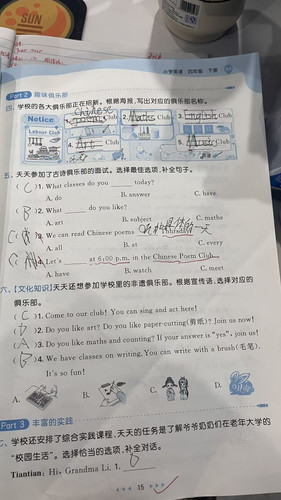 SUN
小学英语 四年级 下册
Part 2 趣味俱乐部
四、学校的各大俱乐部正在招新。根据海报,写出对应的俱乐部名称。
Notice
Labour Club
1. Chinese poems Club
2. Maths Club
3. English Club
4. Art Club
5. Music Club
五、天天参加了古诗俱乐部的面试。选择最佳选项,补全句子。
( C )1. What classes do you today?
A. do B. answer C. have
( B )2. What do you like?
A. art B. subject C. maths
3. We can read Chinese poems
A. all B. at C. every
4. Let's at 6:00 p.m. in the Chinese Poem Club.
A. have B. watch C. meet
六、【文化知识】天天还想参加学校里的非遗俱乐部。根据宣传语,选择对应的
俱乐部。
( C )1. Come to our club! You can sing and act here!
( D )2. Do you like art? Do you like paper-cutting(剪纸)? Join us now!
( A )3. Do you like maths and counting? If your answer is "yes", join us!
( B )4. We have classes on writing. You can write with a brush(毛笔).
It's so fun!
A. B. C. D.
Part 3 丰富的实践
七、学校还安排了综合实践课程,天天的任务是了解爷爷奶奶们在老年大学的
"校园生活"。选择恰当的选项,补全对话。
Tiantian: Hi, Grandma Li. 1. D
15